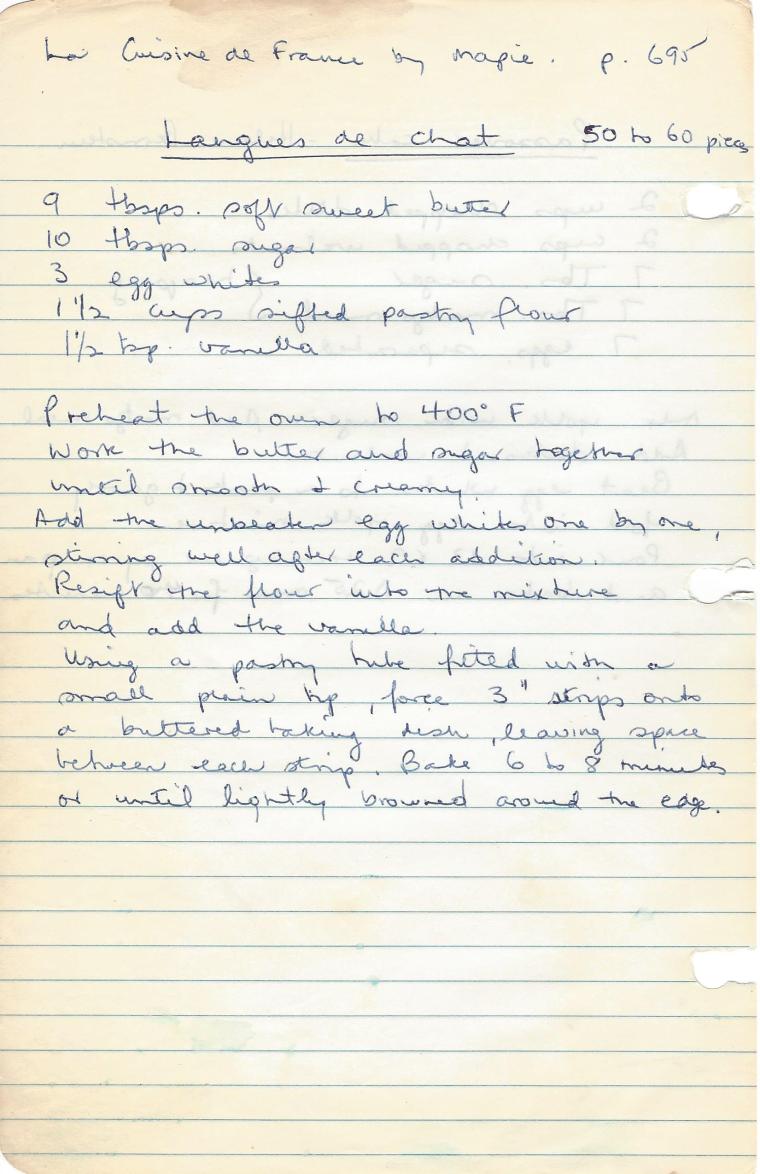 La Cuisine de France by Mapie. p. 695
Langues de chat 50 to 60 pieces
9 tbsps. soft sweet butter
10 tbsps. sugar
3 egg whites
1 1/2 cups sifted pastry flour
1 1/2 tsp. vanilla
Preheat the oven to 400° F
Work the butter and sugar together
until smooth & creamy.
Add the unbeaten egg whites one by one,
stirring well after each addition.
Resift the flour into the mixture
and add the vanilla.
Using a pastry tube fitted with a
small plain tip, force 3" strips onto
a buttered baking dish, leaving space
between each strip. Bake 6 to 8 minutes
or until lightly browned around the edge.